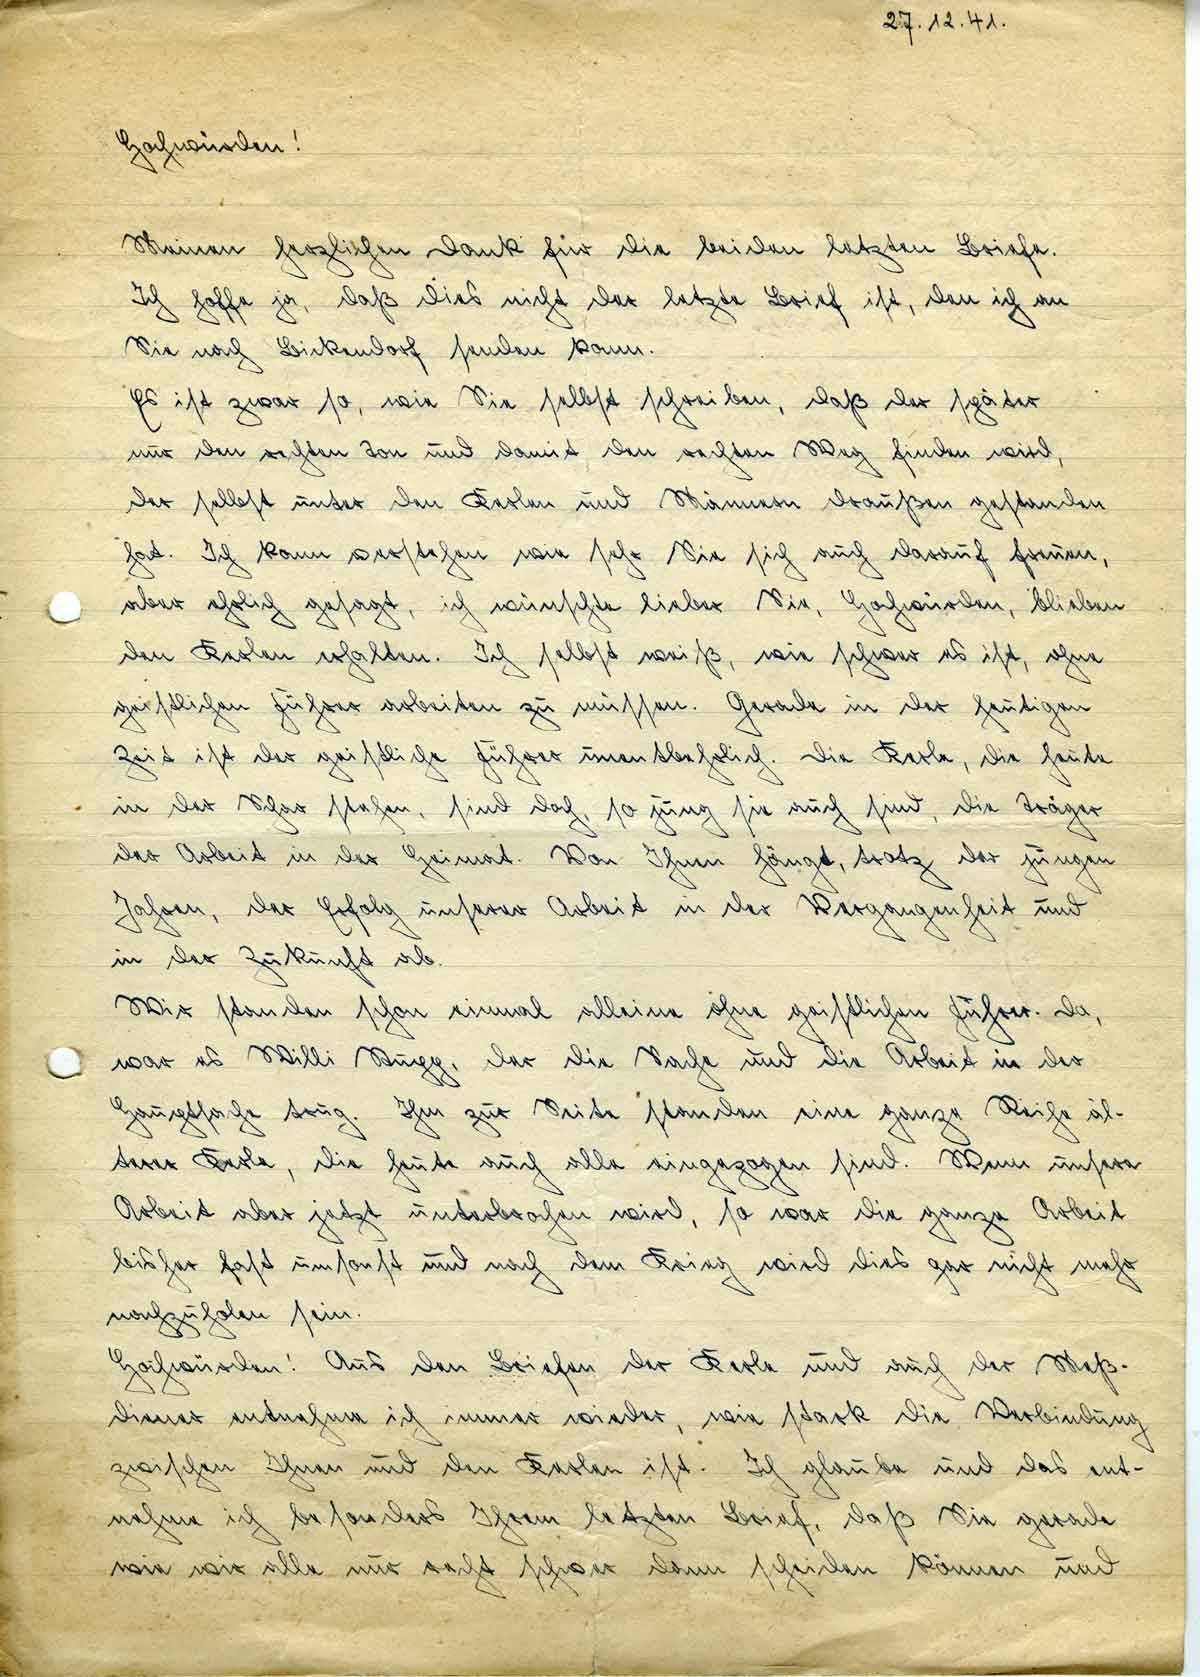 27.12.41.
Hochwürden!
Meinen herzlichen Dank für die beiden letzten Briefe.
Ich hoffe ja, daß dies nicht der letzte Brief ist, den ich an
Sie nach Bickendorf senden kann.
Es ist zwar so, wie Sie selbst schreiben, daß der später
nur den rechten Ton und damit den rechten Weg finden wird,
der selbst unter den Kerlen und Männern draußen gestanden
hat. Ich kann verstehen wie sehr Sie sich auch darauf freuen,
aber ehrlich gesagt, ich wünschte lieber Sie, Hochwürden, blieben
den Kerlen erhalten. Ich selbst weiß, wie schwer es ist, ohne
geistlichen Führer arbeiten zu müssen. Gerade in der heutigen
Zeit ist der geistliche Führer unentbehrlich. Die Kerle, die heute
in der Schar stehen, sind doch, so jung sie auch sind, die Träger
der Arbeit in der Heimat. Von Ihnen hängt, trotz der jungen
Jahren, der Erfolg unserer Arbeit in der Vergangenheit und
in der Zukunft ab.
Wir standen schon einmal alleine ohne geistlichen Führer. Da,
war es Willi, der die Sache und die Arbeit in der
Hauptsache trug. Ihm zur Seite standen eine ganze Reihe äl-
terer Kerle, die heute auch alle eingezogen sind. Wenn unsere
Arbeit aber jetzt unterbrochen wird, so war die ganze Arbeit
bisher fast umsonst und nach dem Krieg wird dies gar nicht mehr
nachzuholen sein.
Hochwürden! Aus den Briefen der Kerle und auch der Meß-
diener entnehme ich immer wieder, wie stark die Verbindung
zwischen Ihnen und den Kerlen ist. Ich glaube und das ent-
nehme ich besonders Ihrem letzten Brief, daß Sie gerade
wie wir alle nur recht schwer dann scheiden können und